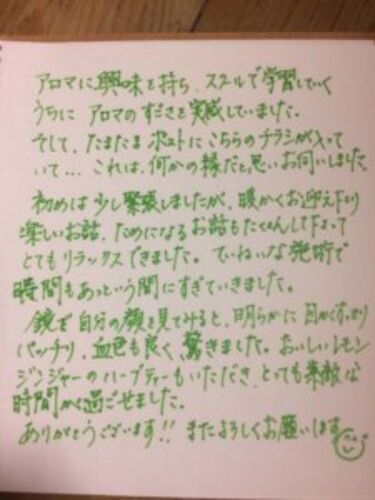 アロマに興味を持ち、スクールで学習していく
うちに アロマのすごさを実感していました。
そして、たまたま ポストに こちらのチラシが入って
いて… これは、何かの縁だと思いお伺いしました。
初めは少し緊張しましたが、暖かくお迎え下さり
楽しいお話、ためになるお話もたくさんして下さって
とてもリラックスできました。ていねいな施術で
時間もあっという間にすぎていきました。
鏡で自分の顔を見てみると、明らかに目がくすっきり
パッチリ、血色も良く、驚きました。おいしいレモン
ジンジャーのハーブティーもいただき、とっても素敵な
時間が過ごせました。
ありがとうございます!! またよろしくお願いします